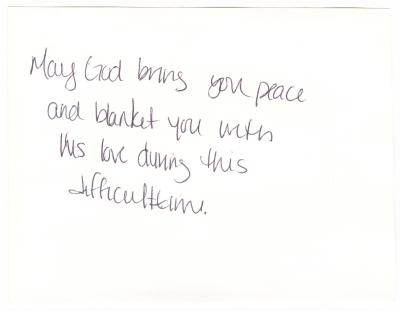 May God bring you peace
and blanket you with
His love during this
difficult time.